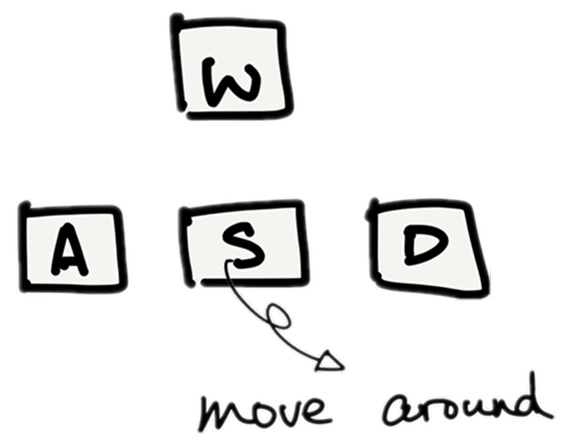 W
A S D
move around